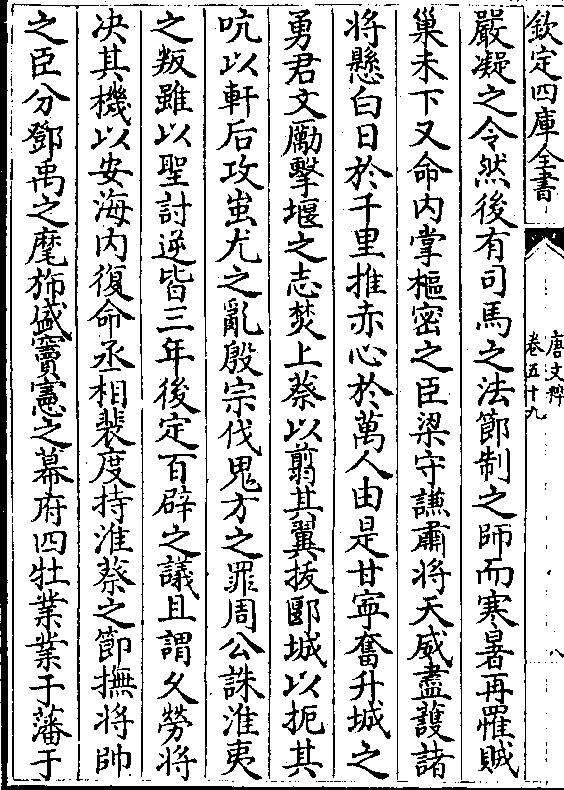 欽定四庫全書
唐文粹
卷五十九
八
嚴凝之令然後有司馬之法節制之師而寒暑再罹賊
巢未下又命内掌樞密之臣梁守謙肅將天威盡護諸
将懸白日於千里推赤心於萬人由是甘寕奮升城之
勇君文勵擊堰之志焚上蔡以翦其翼拔郾城以扼其
吭以軒后攻蚩尤之亂殷宗伐鬼方之罪周公誅淮夷
之叛雖以聖討逆皆三年後定百辟之議且謂久勞將
决其機以安海内復命丞相裴度持淮蔡之節撫将帥
之臣分鄧禹之麾斾盛竇憲之幕府四牡業業于藩于